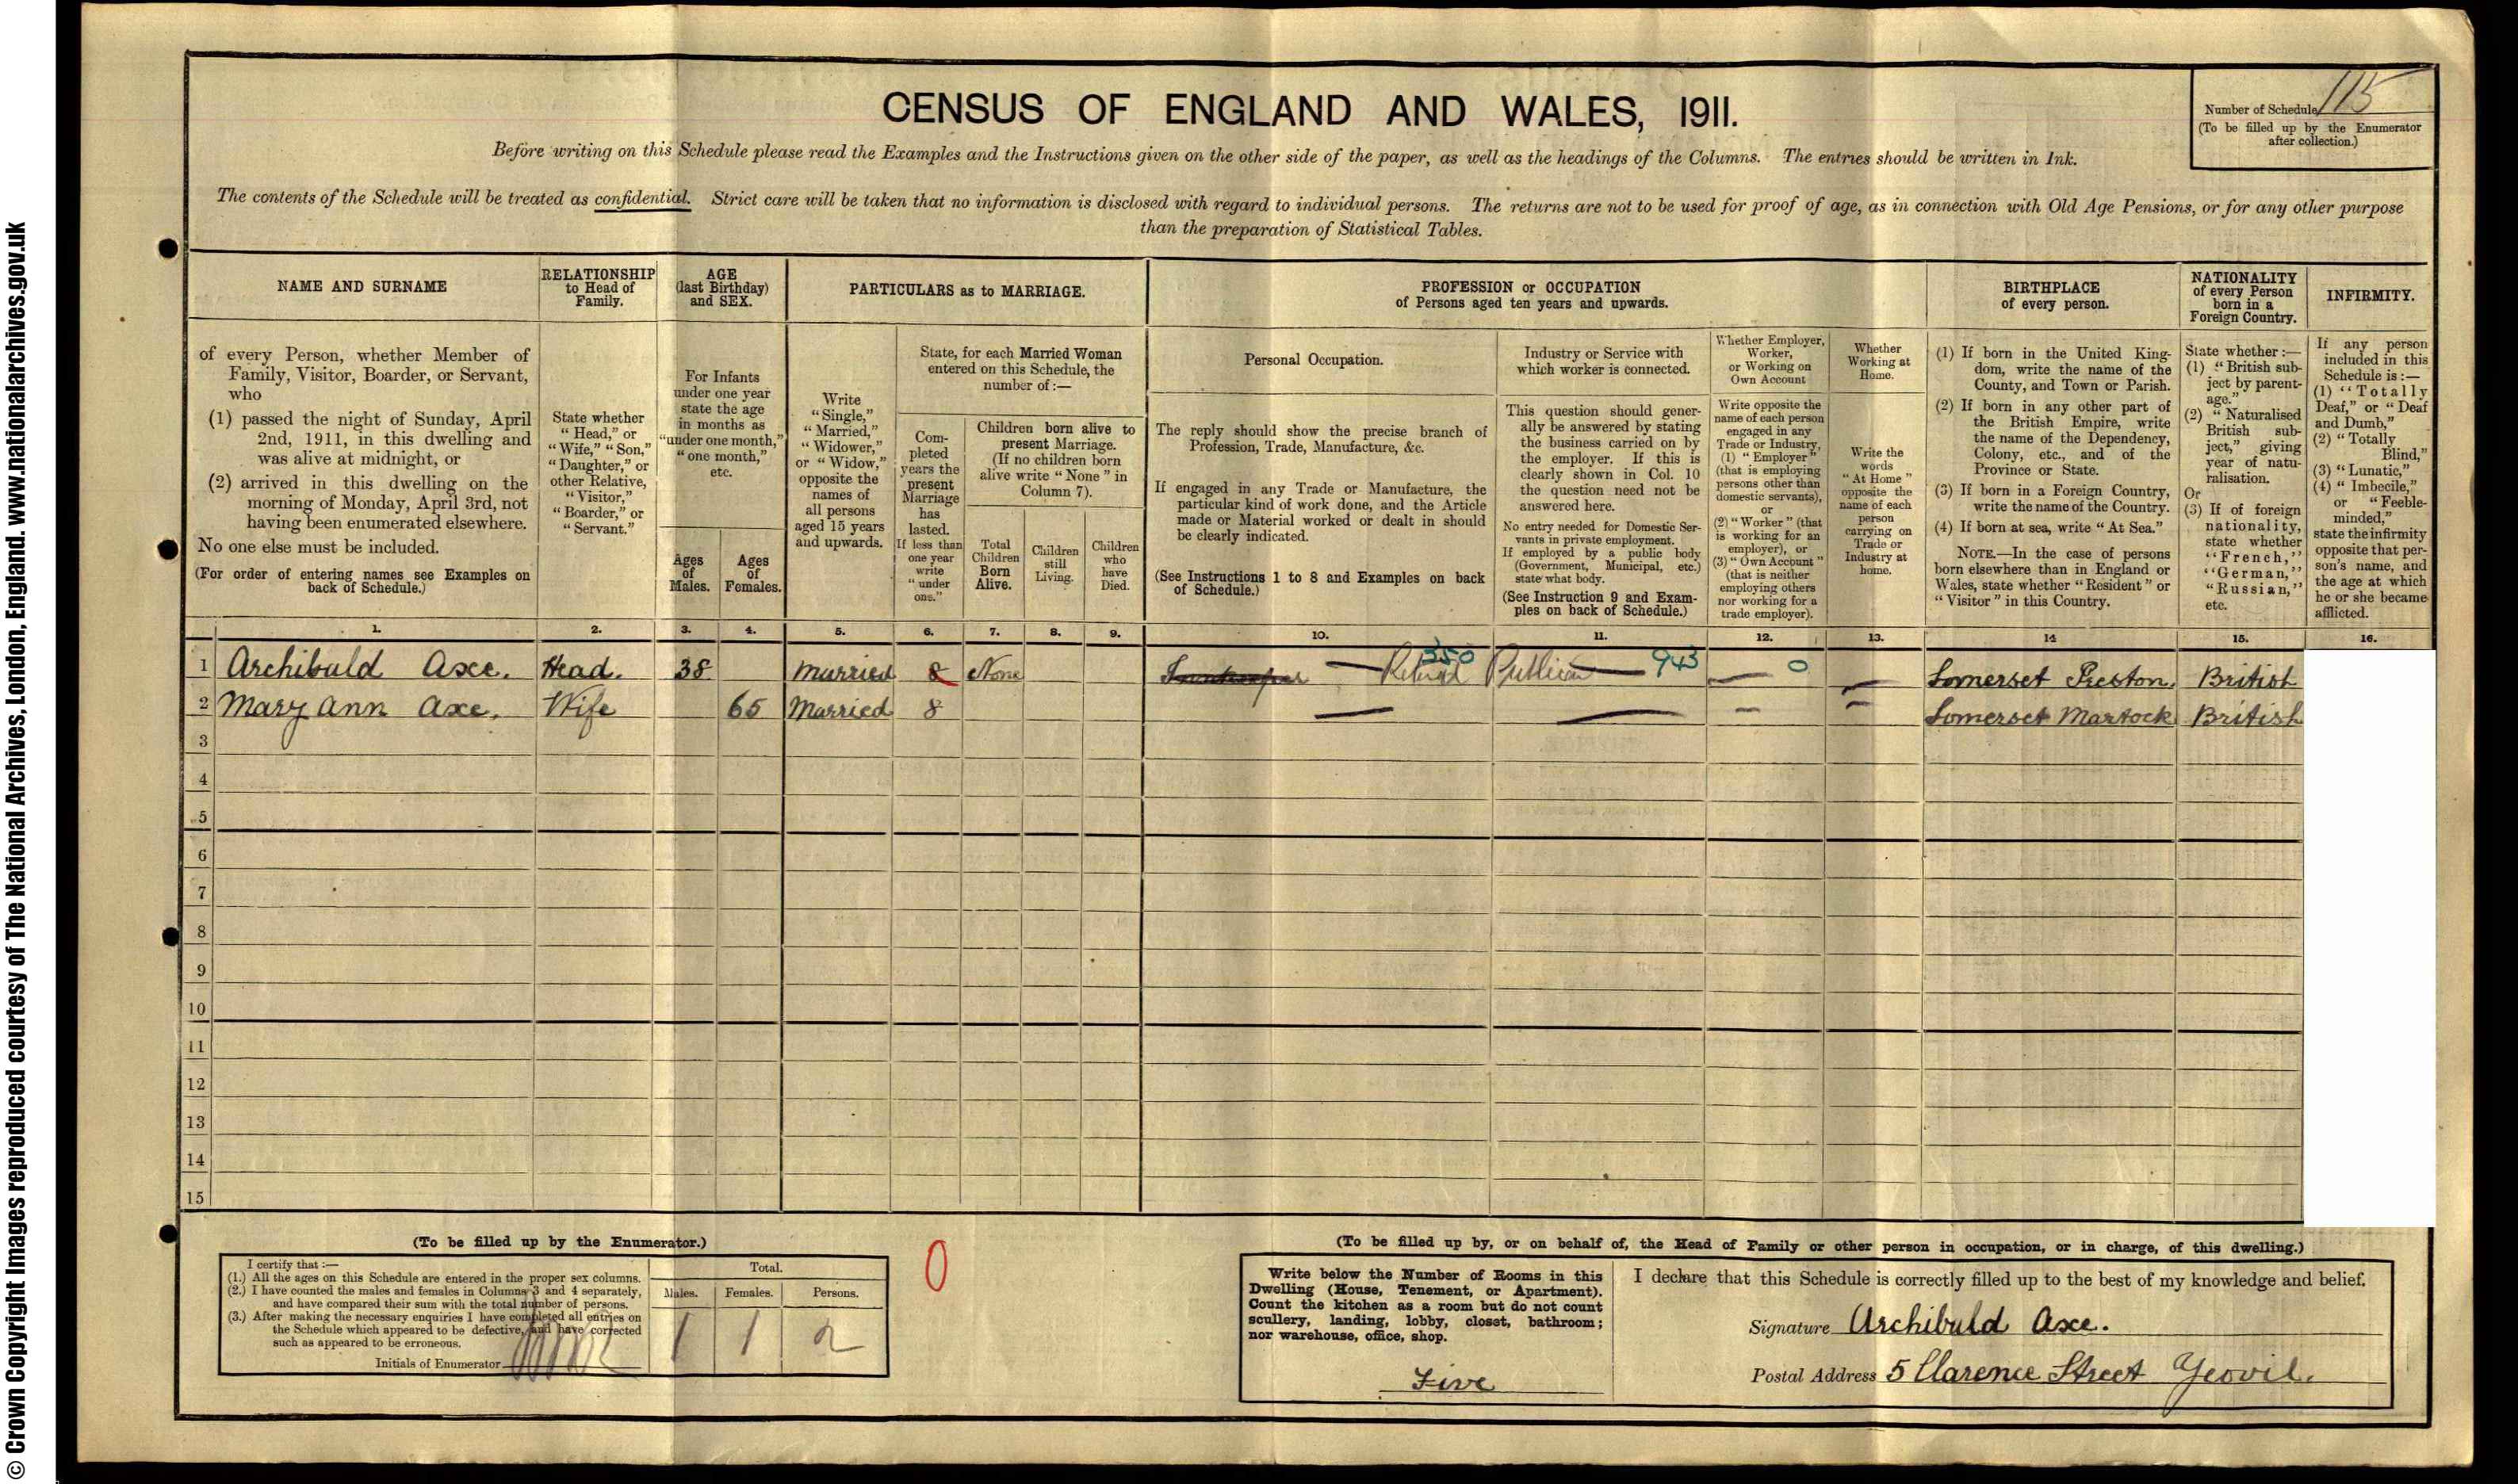 © Crown Copyright Images reproduced courtesy of The National Archives, London, England. www.nationalarchives.gov.uk
CENSUS OF ENGLAND AND WALES, 1911.
Number of Schedule 115
(To be filled up by the Enumerator
after collection.)
Before writing on this Schedule please read the Examples and the Instructions given on the other side of the paper, as well as the headings of the Columns. The entries should be written in Ink.
The contents of the Schedule will be treated as confidential. Strict care will be taken that no information is disclosed with regard to individual persons. The returns are not to be used for proof of age, as in connection with Old Age Pensions, or for any other purpose
than the preparation of Statistical Tables.
NAME AND SURNAME
of every Person, whether Member of
Family, Visitor, Boarder, or Servant,
who
(1) passed the night of Sunday, April
2nd, 1911, in this dwelling and
was alive at midnight, or
(2) arrived in this dwelling on the
morning of Monday, April 3rd, not
having been enumerated elsewhere.
No one else must be included.
(For order of entering names see Examples on
back of Schedule.)
RELATIONSHIP
to Head of
Family.
State whether
“Head,” or
“Wife,” “Son,”
“Daughter,” or
other Relative,
“Visitor,”
“Boarder,” or
“Servant.”
AGE
(last Birthday)
and SEX.
For Infants
under one year
state the age
in months as
“under one month,”
“one month,”
etc.
Ages
of
Males.
Ages
of
Females.
PARTICULARS as to MARRIAGE.
Write
“Single,”
“Married,”
“Widower,”
or “Widow,”
opposite the
names of
all persons
aged 15 years
and upwards.
State, for each Married Woman
entered on this Schedule, the
number of:—
Com-
pleted
years the
present
Marriage
has
lasted.
If less than
one year
write
“under
one.”
Children born alive to
present Marriage.
(If no children born
alive write “None” in
Column 7).
Total
Children
Born
Alive.
Children
still
Living.
Children
who
have
Died.
PROFESSION or OCCUPATION
of Persons aged ten years and upwards.
Personal Occupation.
The reply should show the precise branch of
Profession, Trade, Manufacture, &c.
If engaged in any Trade or Manufacture, the
particular kind of work done, and the Article
made or Material worked or dealt in should
be clearly indicated.
(See Instructions 1 to 8 and Examples on back
of Schedule.)
Industry or Service with
which worker is connected.
This question should gener-
ally be answered by stating
the business carried on by
the employer. If this is
clearly shown in Col. 10
the question need not be
answered here.
No entry needed for Domestic Ser-
vants in private employment.
If employed by a public body
(Government, Municipal, etc.)
state what body.
(See Instruction 9 and Exam-
ples on back of Schedule.)
Whether Employer,
Worker,
or Working on
Own Account
Write opposite the
name of each person
engaged in any
Trade or Industry,
(1) “Employer”
(that is employing
persons other than
domestic servants),
or
(2) “Worker” (that
is working for an
employer), or
(3) “Own Account”
(that is neither
employing others
nor working for a
trade employer).
Whether
Working at
Home.
Write the
words
“At Home”
opposite the
name of each
person
carrying on
Trade or
Industry at
home.
BIRTHPLACE
of every person.
(1) If born in the United King-
dom, write the name of the
County, and Town or Parish.
(2) If born in any other part of
the British Empire, write
the name of the Dependency,
Colony, etc., and of the
Province or State.
(3) If born in a Foreign Country,
write the name of the Country.
(4) If born at sea, write “At Sea.”
NOTE.—In the case of persons
born elsewhere than in England or
Wales, state whether “Resident” or
“Visitor” in this Country.
NATIONALITY
of every Person
born in a
Foreign Country.
State whether:—
(1) “British sub-
ject by parent-
age.”
(2) “Naturalised
British sub-
ject,” giving
year of natu-
ralisation.
Or
(3) If of foreign
nationality,
state whether
“French,”
“German,”
“Russian,”
etc.
INFIRMITY.
If any person
included in this
Schedule is:—
(1) “Totally
Deaf,” or “Deaf
and Dumb,”
(2) “Totally
Blind,”
(3) “Lunatic,”
(4) “Imbecile,”
or “Feeble-
minded,”
state the infirmity
opposite that per-
son's name, and
the age at which
he or she became
afflicted.
1. 2. 3. 4. 5. 6. 7. 8. 9. 10. 11. 12. 13. 14 15. 16.
1 Archibald Axe. Head. 38 Married 8 None Retired 350 Publican 943 0 Somerset Preston. British
2 Mary Ann Axe. Wife 65 Married 8 Somerset Martock British
3
4
5
6
7
8
9
10
11
12
13
14
15
(To be filled up by the Enumerator.)
I certify that:—
(1.) All the ages on this Schedule are entered in the proper sex columns.
(2.) I have counted the males and females in Columns 3 and 4 separately,
and have compared their sum with the total number of persons.
(3.) After making the necessary enquiries I have completed all entries on
the Schedule which appeared to be defective, and have corrected
such as appeared to be erroneous.
Initials of Enumerator
Total.
Males. Females. Persons.
1 1 2
0
(To be filled up by, or on behalf of, the Head of Family or other person in occupation, or in charge, of this dwelling.)
Write below the Number of Rooms in this
Dwelling (House, Tenement, or Apartment).
Count the kitchen as a room but do not count
scullery, landing, lobby, closet, bathroom;
nor warehouse, office, shop.
Five
I declare that this Schedule is correctly filled up to the best of my knowledge and belief.
Signature Archibald Axe.
Postal Address 5 Clarence Street Yeovil.